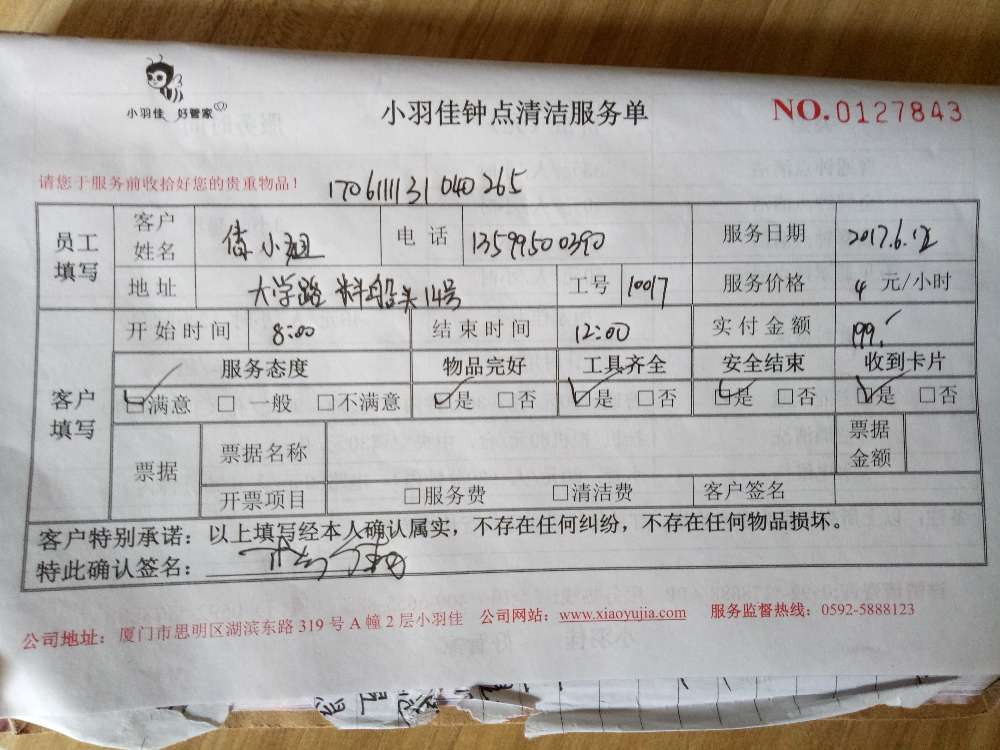 小羽佳 好管家
小羽佳钟点清洁服务单
NO.0127843
请您于服务前收拾好您的贵重物品！
170611131040265
员工填写 客户姓名 小姐 电话 13599500390 服务日期 2017.6.12
地址 大学路 料船头14号 工号 10017 服务价格 4 元/小时
客户填写 开始时间 8:00 结束时间 12:00 实付金额 199.
服务态度 物品完好 工具齐全 安全结束 收到卡片
☑满意 □一般 □不满意 ☑是 □否 ☑是 □否 ☑是 □否 ☑是 □否
票据 票据名称 票据金额
开票项目 □服务费 □清洁费 客户签名
客户特别承诺：以上填写经本人确认属实，不存在任何纠纷，不存在任何物品损坏。
特此确认签名：
公司地址：厦门市思明区湖滨东路319号A幢2层小羽佳 公司网站：www.xiaoyujia.com 服务监督热线：0592-5888123